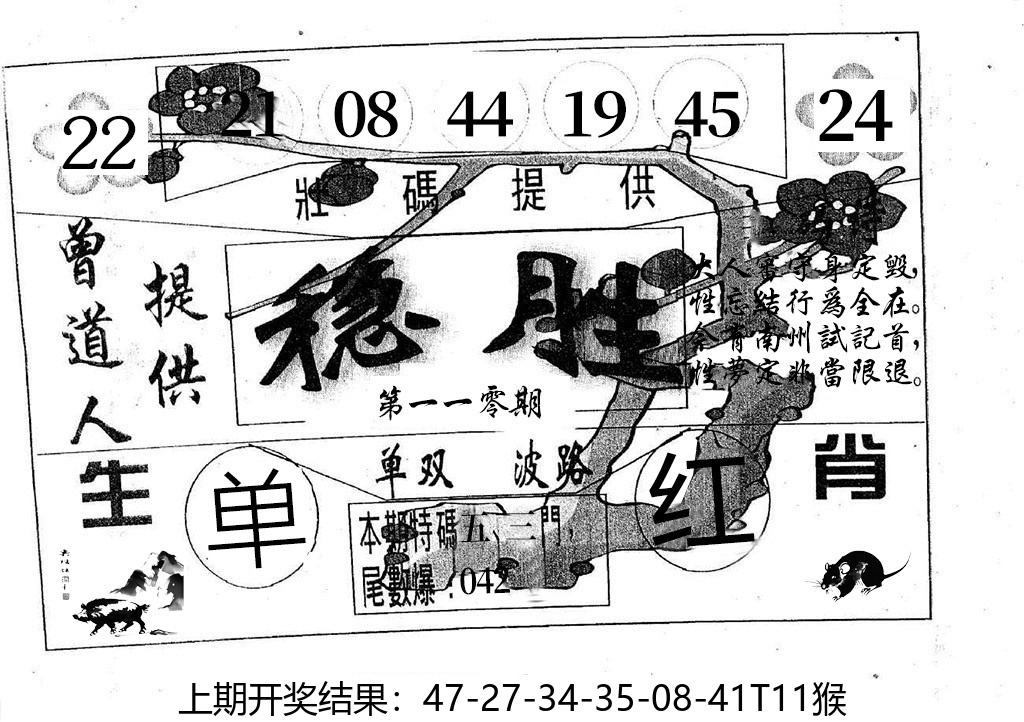 22
21 08 44 19 45
24
壯碼提供
曾道人
提供
稳胜
第一一零期
大人害守身定毀,
性忘結行爲全在。
余肯南州試記首,
性夢定非當限退。
单双 波路
生肖
单
红
本期特碼五、三門,
尾數爆:042
上期开奖结果：47-27-34-35-08-41T11猴